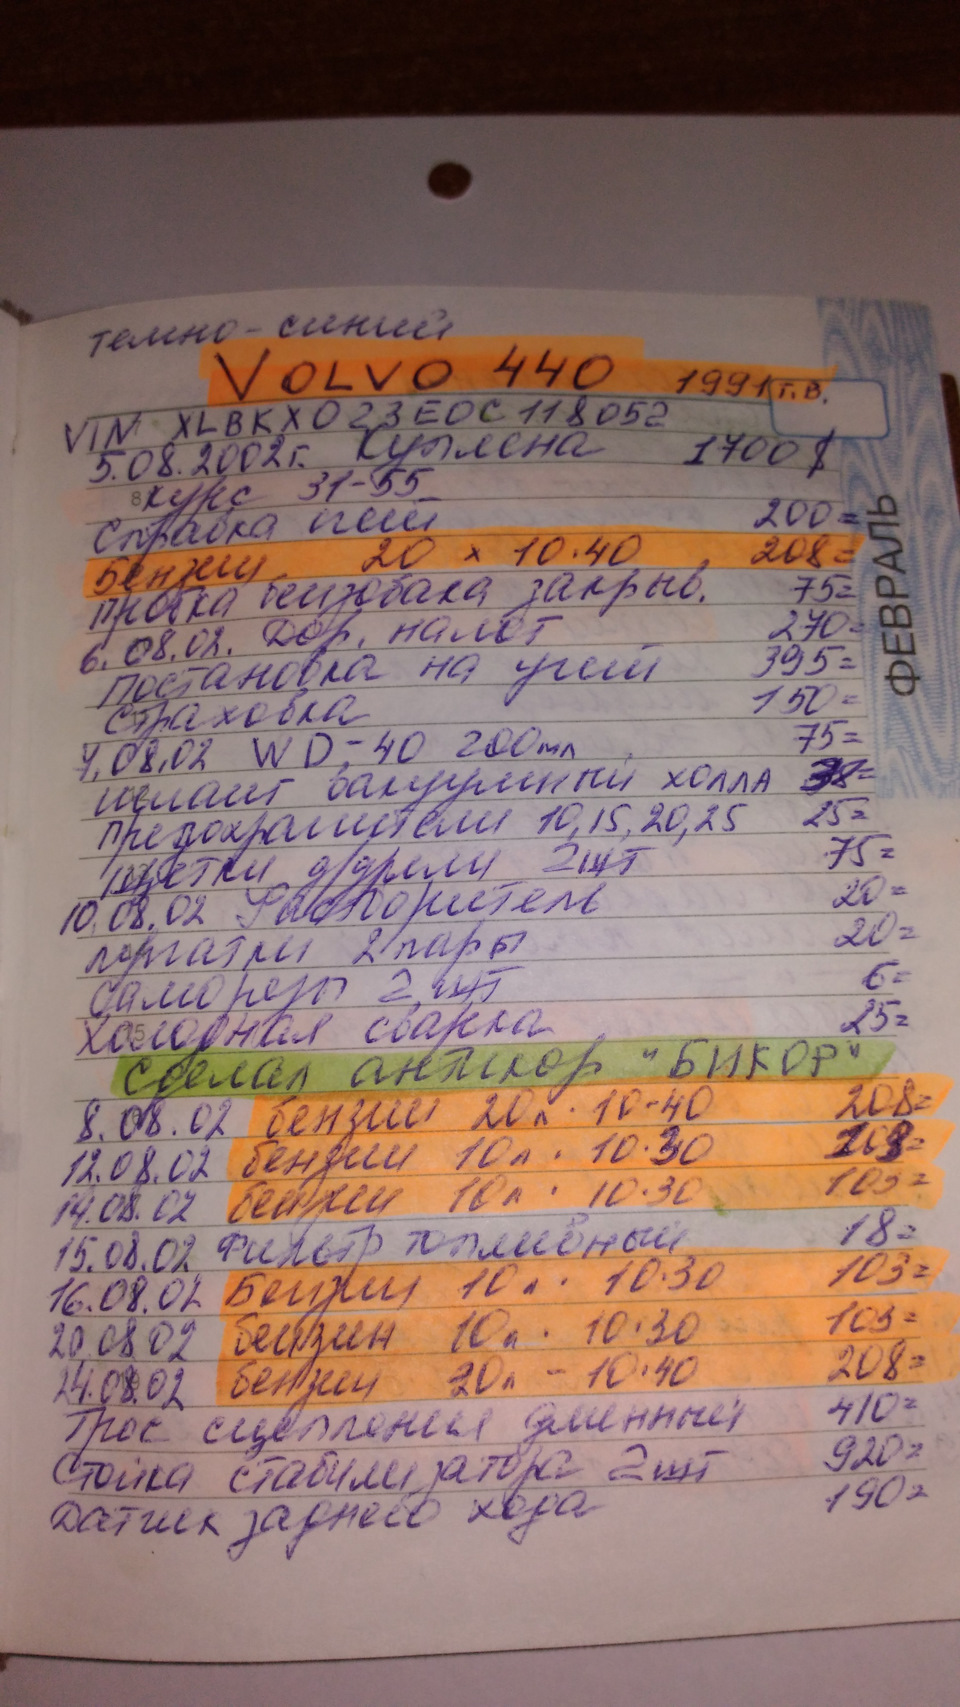 темно-синий
VOLVO 440 1991 г.в.
VIN XLBKX023EOC118052
5.08.2002г. Куплена 1700 $
курс 31-55
Справка 200=
Бензин 20 x 10.40 208=
пробка бензобака закрыв. 75=
6.08.02. Дор. налог 270=
постановка на учет 395=
страховка 150=
7.08.02 WD-40 200мл 75=
шланг вакуумный холла 38=
предохранители 10,15,20,25 25=
щетки д/дрели 2шт 75=
10.08.02 Распоритель 20=
перчатки 2 пары 20=
саморезы 2 шт 6=
холодная сварка 25=
сделал антикор "БИКОР"
8.08.02 бензин 20л. 10-40 208=
12.08.02 бензин 10л. 10.30 103=
14.08.02 бензин 10л. 10.30 103=
15.08.02 Фильтр топливный 18=
16.08.02 Бензин 10л. 10.30 103=
20.08.02 бензин 10л. 10.30 103=
24.08.02 бензин 20л - 10.40 208=
Трос сцепления длинный 410=
Стойка стабилизатора 2шт 920=
Датчик заднего хода 190=
ФЕВРАЛЬ